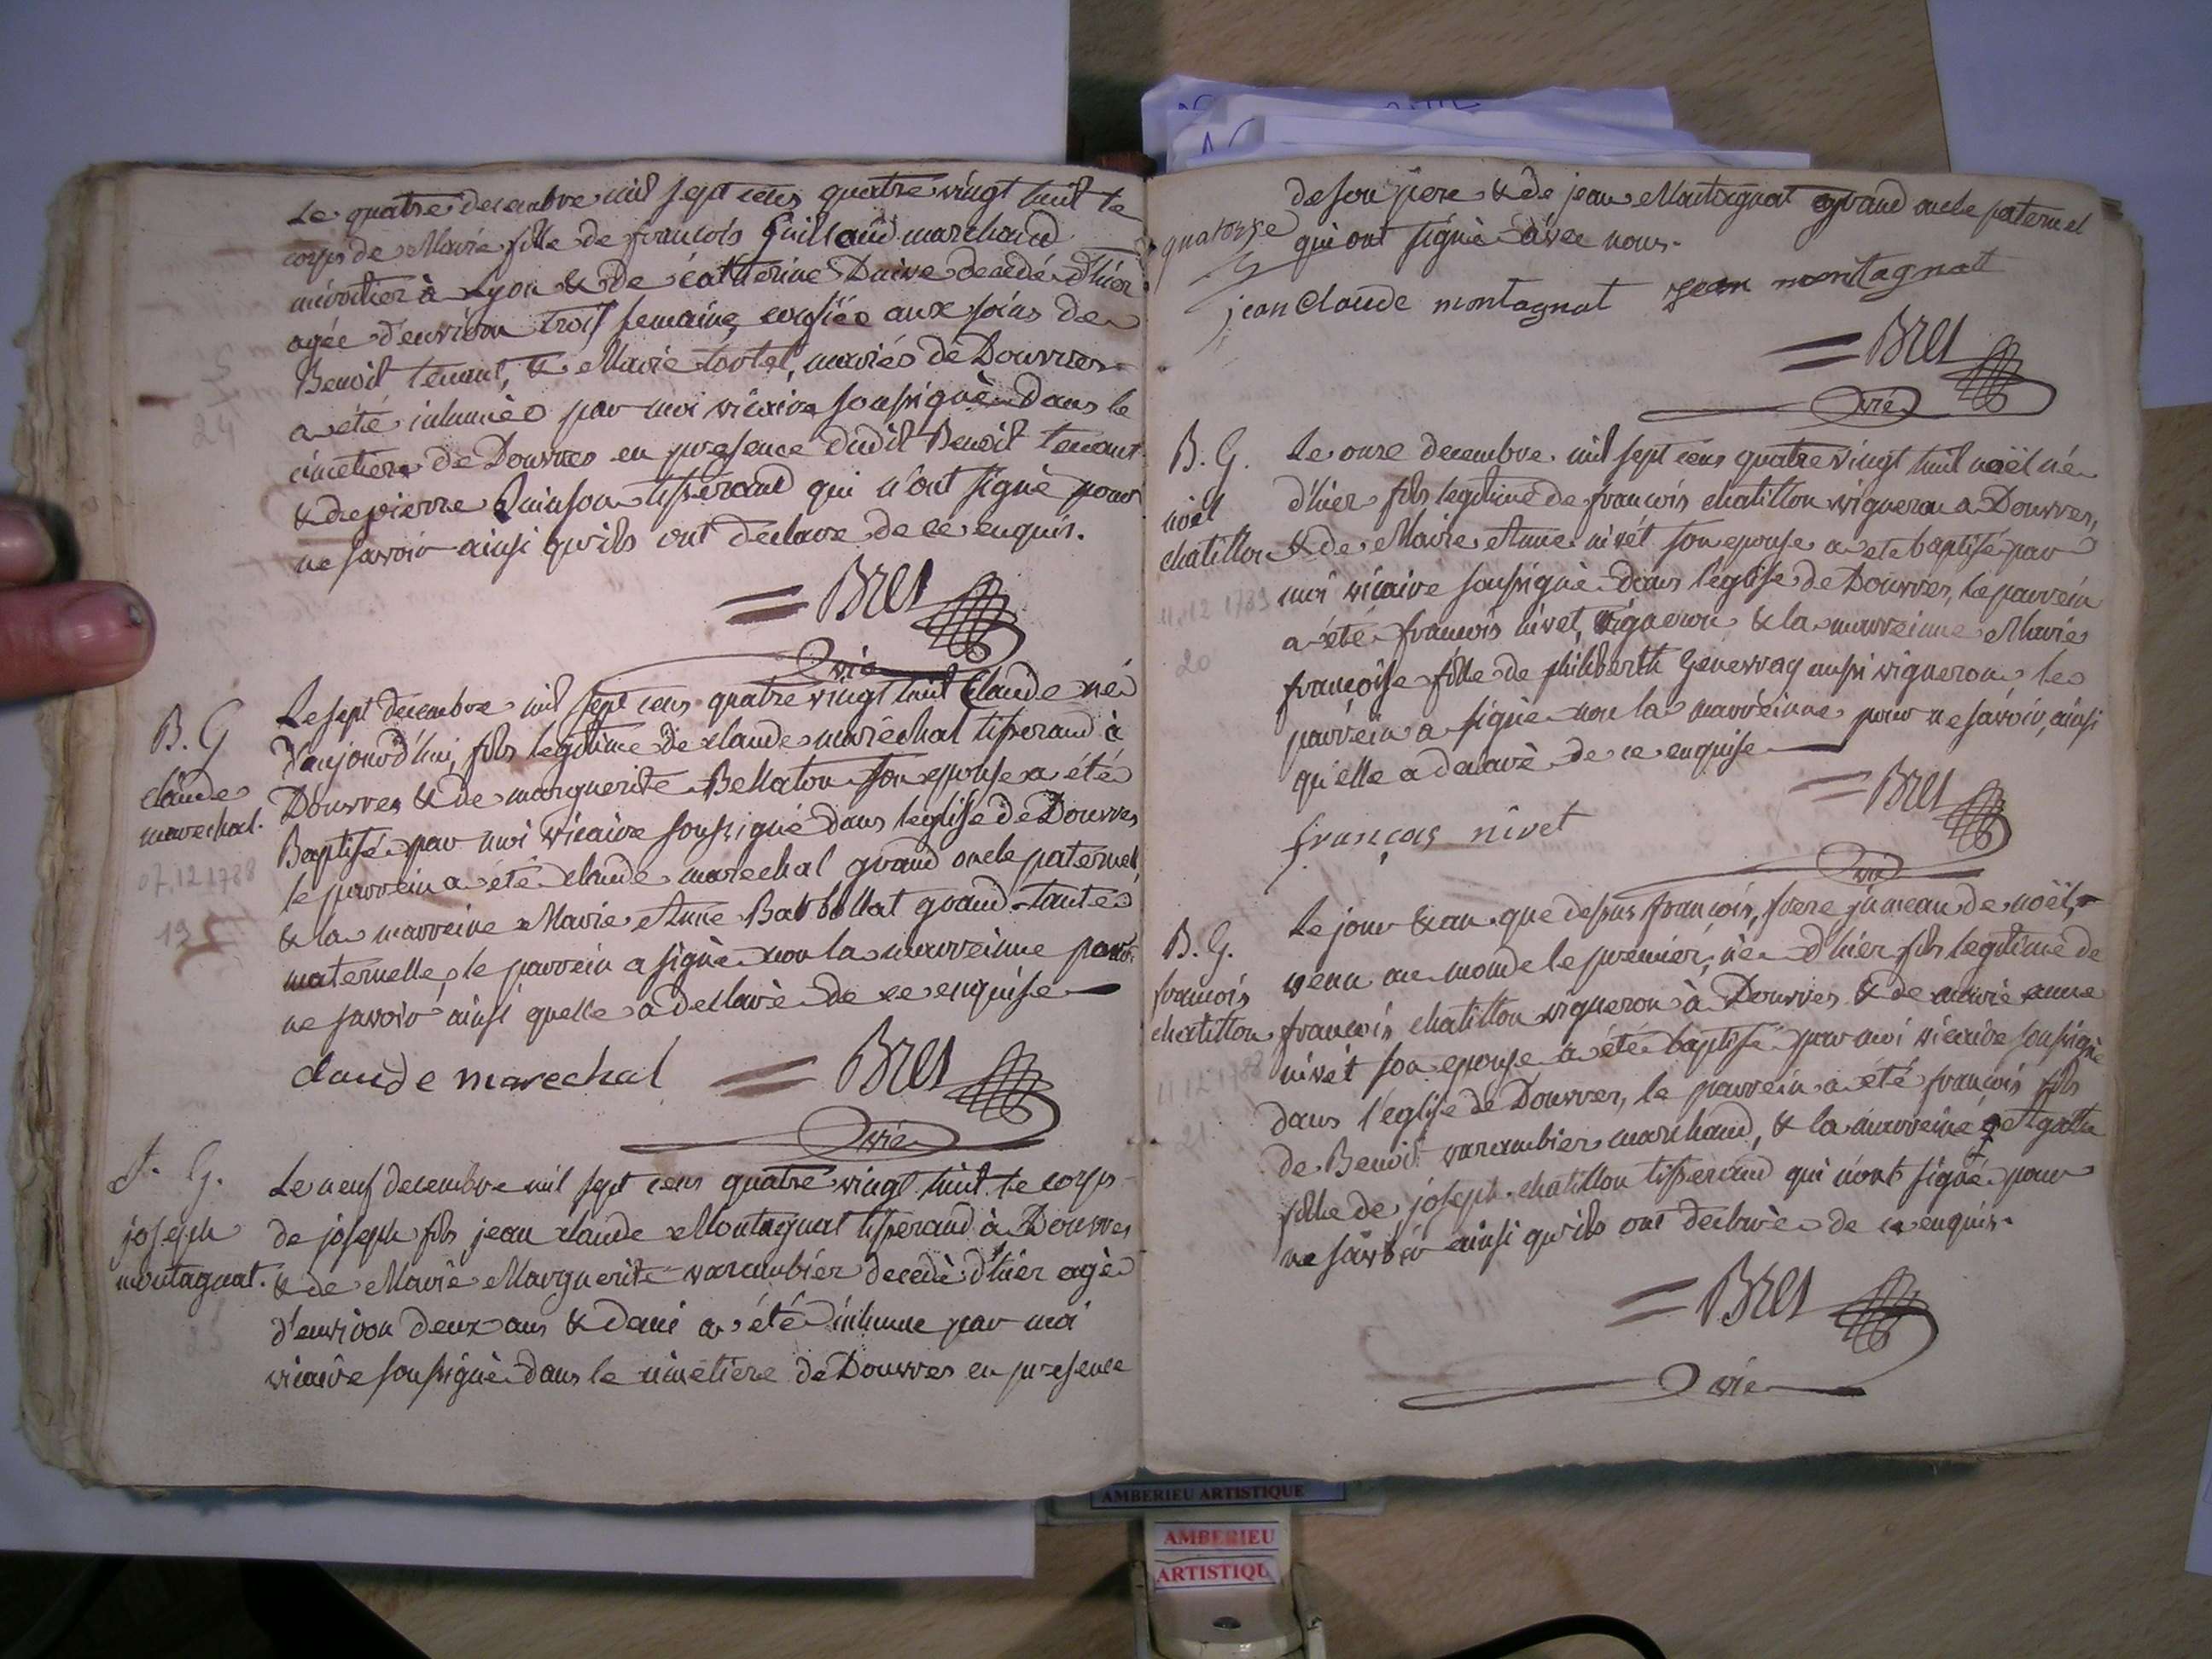 Le quatre decembre mil sept cens quatre vingt huit le
corps de Marie fille de francois Guillaud marchand
miroitier à Lyon & de catherine Duive decedé d'hier
agée d'environ trois semaine, confiée aux soins de
Benoit tenant, & Marie tortel, mariés de Douvres
a été inhumée par moi vicaire soussigné dans le
cimetiere de Douvres en presence dudit Benoit tenant
& de pierre Quinson tisserand qui n'ont signé pour
ne savoir ainsi qu'ils ont declare de ce enquis.
= Bres
vic
24
B. G
claude
marechal.
07.12.1788
19
Le sept decembre mil sept cens quatre vingt huit Claude né
d'aujourd'hui, fils legitime de claude marêchal tisserand à
Douvres & de marguerite Bellaton son epouse a été
Baptisé par moi vicaire soussigné dans leglise de Douvres
le parrein a été claude marechal grand oncle paternel,
& la marreine Marie Anne Barbollat grand-tante
maternelle, le parrein a signé non la marreinne pour
ne savoir ainsi quelle a declaré de ce enquise
claude marechal = Bres
vic
S. G.
joseph
montagnat.
25
Le neuf decembre mil sept cens quatre vingt huit le corps
de joseph fils jean claude Montagnat tisserand à Douvres
& de Marie Marguerite varambier decedé d'hier agé
d'environ deux ans & demi a été inhumé par moi
vicaire soussigné dans le cimetiere de Douvres en presence
de son pere & de jean Montagnat grand oncle paternel
quatorze
qui ont signé avec nous.
jean Claude montagnat jean montagnat
= Bres
vic
B. G.
noël
chatillon
11.12 1788
20
Le onze decembre mil sept cens quatre vingt huit noël né
d'hier fils legitime de francois chatillon vigneron a Douvres,
& de Marie Anne nivét son epouse a ete baptisé par
moi vicaire soussigné dans l'eglise de Douvres, le parrein
a été francois nivet, vigneron & la marreinne Marie
françoise fille de philiberth Genevray aussi vigneron le
parrein a signé non la marreinne pour ne savoir, ainsi
qu'elle a declaré de ce enquise
= Bres
françois nivet
vic
B. G.
francois
chatillon
11 12 1788
21
Le jour & an que dessus francois, frere jumeau de noël,
venu au monde le premier, né d'hier fils legitime de
francois chatillon vigneron à Douvres & de marie anne
nivét son epouse a été baptisé par moi vicaire soussigné
dans l'eglise de Douvres, le parrein a été francois fils
de Benoit varambier marchand, & la marreine Agathe
fille de joseph chatillon tisserand qui n'ont signé pour
ne savoir ainsi qu'ils ont declaré de ce enquis.
= Bres
vic
AMBERIEU ARTISTIQUE
AMBERIEU
ARTISTIQU